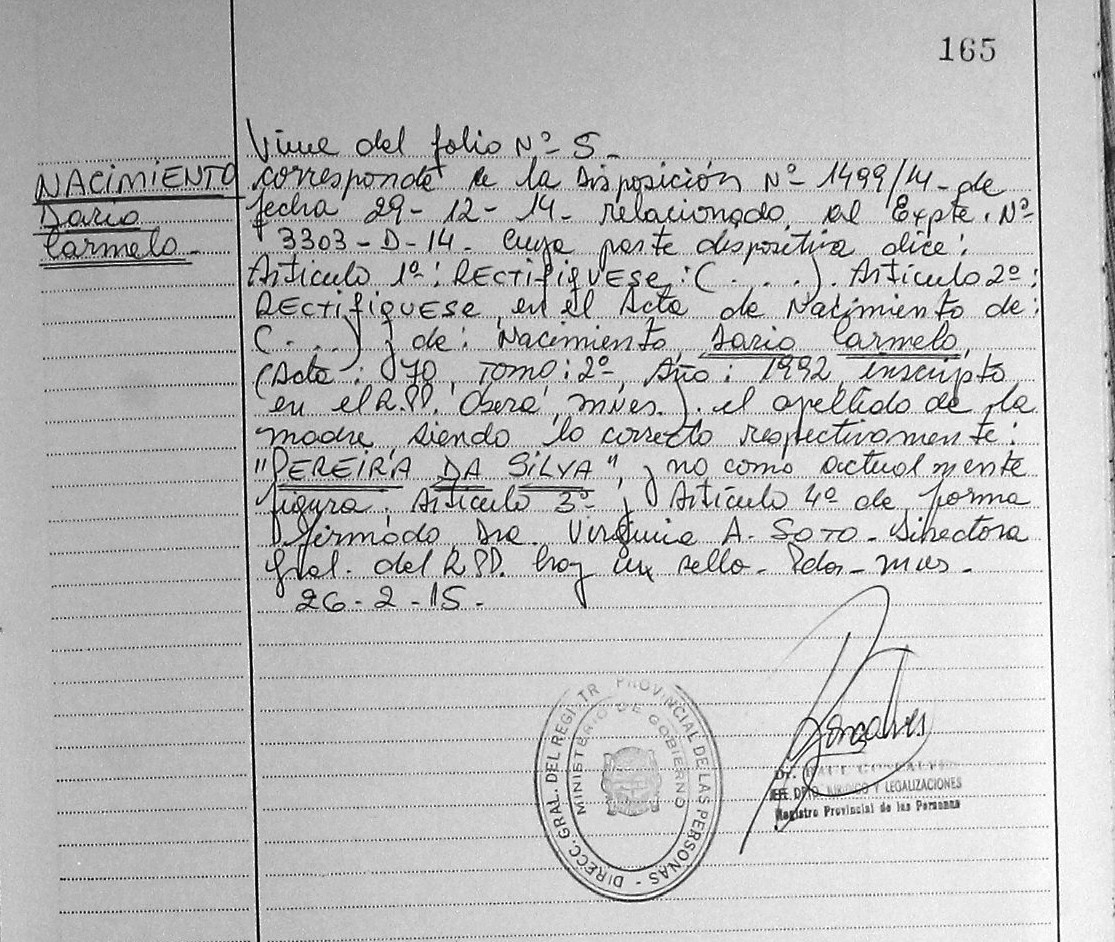 165
Viene del folio Nº 5-
NACIMIENTO
Dario
Carmelo-
corresponde a la Disposición Nº 1499/14- de
fecha 29-12-14- relacionado al Expte. Nº
3303-D-14- cuya parte dispositiva dice:
Artículo 1º: RECTIFIQUESE: (....). Artículo 2º:
RECTIFIQUESE, en el Acta de Nacimiento de:
(....) y de: Nacimiento, Dario Carmelo,
(Acta: 970, Tomo: 2º, Año: 1992, inscripto
en el R.PP. Oberá, mnes.). el apellido de la
madre siendo lo correcto respectivamente:
"PEREIRA DA SILVA", y no como actualmente
figura. Artículo 3º y Artículo 4º de forma
firmado Dra. Virginia A. SOTO- Directora
Gral. del RPP. hay un sello- Pdas- mnes-
26-2-15-
DIRECC. GRAL. DEL REGISTR PROVINCIAL DE LAS PERSONAS -
MINISTERIO DE GOBIERNO
Gonçalves
Dr. RAUL GONCALVES
JEFE DPTO. JURIDICO Y LEGALIZACIONES
Registro Provincial de las Personas